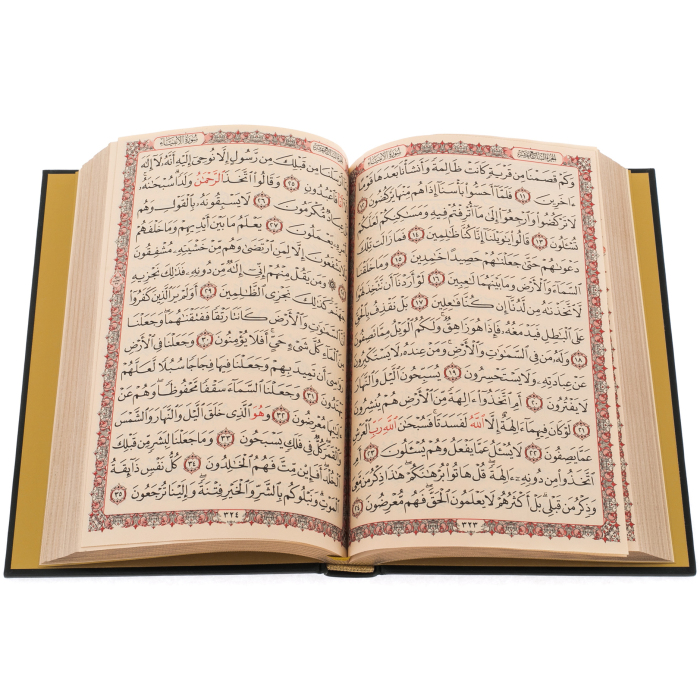 الجزء السابع عشر سورة الأنبياء
وَكَمْ قَصَمْنَا مِن قَرْيَةٍ كَانَتْ ظَالِمَةً وَأَنشَأْنَا بَعْدَهَا قَوْمًا
ءَاخَرِينَ ١١ فَلَمَّآ أَحَسُّوا۟ بَأْسَنَآ إِذَا هُم مِّنْهَا يَرْكُضُونَ ١٢
لَا تَرْكُضُوا۟ وَٱرْجِعُوٓا۟ إِلَىٰ مَآ أُتْرِفْتُمْ فِيهِ وَمَسَٰكِنِكُمْ لَعَلَّكُمْ
تُسْـَٔلُونَ ١٣ قَالُوا۟ يَٰوَيْلَنَآ إِنَّا كُنَّا ظَٰلِمِينَ ١٤ فَمَا زَالَت تِّلْكَ
دَعْوَىٰهُمْ حَتَّىٰ جَعَلْنَٰهُمْ حَصِيدًا خَٰمِدِينَ ١٥ وَمَا خَلَقْنَا
ٱلسَّمَآءَ وَٱلْأَرْضَ وَمَا بَيْنَهُمَا لَٰعِبِينَ ١٦ لَوْ أَرَدْنَآ أَن نَّتَّخِذَ لَهْوًا
لَّٱتَّخَذْنَٰهُ مِن لَّدُنَّآ إِن كُنَّا فَٰعِلِينَ ١٧ بَلْ نَقْذِفُ بِٱلْحَقِّ
عَلَى ٱلْبَٰطِلِ فَيَدْمَغُهُۥ فَإِذَا هُوَ زَاهِقٌ ۚ وَلَكُمُ ٱلْوَيْلُ مِمَّا تَصِفُونَ
١٨ وَلَهُۥ مَن فِى ٱلسَّمَٰوَٰتِ وَٱلْأَرْضِ ۚ وَمَنْ عِندَهُۥ لَا يَسْتَكْبِرُونَ
عَنْ عِبَادَتِهِۦ وَلَا يَسْتَحْسِرُونَ ١٩ يُسَبِّحُونَ ٱلَّيْلَ وَٱلنَّهَارَ
لَا يَفْتُرُونَ ٢٠ أَمِ ٱتَّخَذُوٓا۟ ءَالِهَةً مِّنَ ٱلْأَرْضِ هُمْ يُنشِرُونَ
٢١ لَوْ كَانَ فِيهِمَآ ءَالِهَةٌ إِلَّا ٱللَّهُ لَفَسَدَتَا ۚ فَسُبْحَٰنَ ٱللَّهِ رَبِّ ٱلْعَرْشِ
عَمَّا يَصِفُونَ ٢٢ لَا يُسْـَٔلُ عَمَّا يَفْعَلُ وَهُمْ يُسْـَٔلُونَ ٢٣ أَمِ
ٱتَّخَذُوا۟ مِن دُونِهِۦٓ ءَالِهَةً ۖ قُلْ هَاتُوا۟ بُرْهَٰنَكُمْ ۖ هَٰذَا ذِكْرُ مَن مَّعِىَ
وَذِكْرُ مَن قَبْلِى ۗ بَلْ أَكْثَرُهُمْ لَا يَعْلَمُونَ ٱلْحَقَّ ۖ فَهُم مُّعْرِضُونَ ٢٤
٣٢٣
سورة الأنبياء
مِن قَبْلِكَ مِن رَّسُولٍ إِلَّا نُوحِىٓ إِلَيْهِ أَنَّهُۥ لَآ إِلَٰهَ
٢٥ وَقَالُوا۟ ٱتَّخَذَ ٱلرَّحْمَٰنُ وَلَدًا ۗ سُبْحَٰنَهُۥ ۚ
مُّكْرَمُونَ ٢٦ لَا يَسْبِقُونَهُۥ بِٱلْقَوْلِ وَهُم
يَعْمَلُونَ ٢٧ يَعْلَمُ مَا بَيْنَ أَيْدِيهِمْ وَمَا خَلْفَهُمْ
يَشْفَعُونَ إِلَّا لِمَنِ ٱرْتَضَىٰ وَهُم مِّنْ خَشْيَتِهِۦ مُشْفِقُونَ
۞ وَمَن يَقُلْ مِنْهُمْ إِنِّىٓ إِلَٰهٌ مِّن دُونِهِۦ فَذَٰلِكَ نَجْزِيهِ
كَذَٰلِكَ نَجْزِى ٱلظَّٰلِمِينَ ٢٩ أَوَلَمْ يَرَ ٱلَّذِينَ كَفَرُوٓا۟
ٱلسَّمَٰوَٰتِ وَٱلْأَرْضَ كَانَتَا رَتْقًا فَفَتَقْنَٰهُمَا ۖ وَجَعَلْنَا
ٱلْمَآءِ كُلَّ شَىْءٍ حَىٍّ ۖ أَفَلَا يُؤْمِنُونَ ٣٠ وَجَعَلْنَا فِى ٱلْأَرْضِ
رَوَٰسِىَ أَن تَمِيدَ بِهِمْ وَجَعَلْنَا فِيهَا فِجَاجًا سُبُلًا لَّعَلَّهُمْ
يَهْتَدُونَ ٣١ وَجَعَلْنَا ٱلسَّمَآءَ سَقْفًا مَّحْفُوظًا ۖ وَهُمْ عَنْ
ءَايَٰتِهَا مُعْرِضُونَ ٣٢ وَهُوَ ٱلَّذِى خَلَقَ ٱلَّيْلَ وَٱلنَّهَارَ وَٱلشَّمْسَ
وَٱلْقَمَرَ ۖ كُلٌّ فِى فَلَكٍ يَسْبَحُونَ ٣٣ وَمَا جَعَلْنَا لِبَشَرٍ مِّن قَبْلِكَ
ٱلْخُلْدَ ۖ أَفَإِي۟ن مِّتَّ فَهُمُ ٱلْخَٰلِدُونَ ٣٤ كُلُّ نَفْسٍ ذَآئِقَةُ
ٱلْمَوْتِ ۗ وَنَبْلُوكُم بِٱلشَّرِّ وَٱلْخَيْرِ فِتْنَةً ۖ وَإِلَيْنَا تُرْجَعُونَ ٣٥
٣٢٤